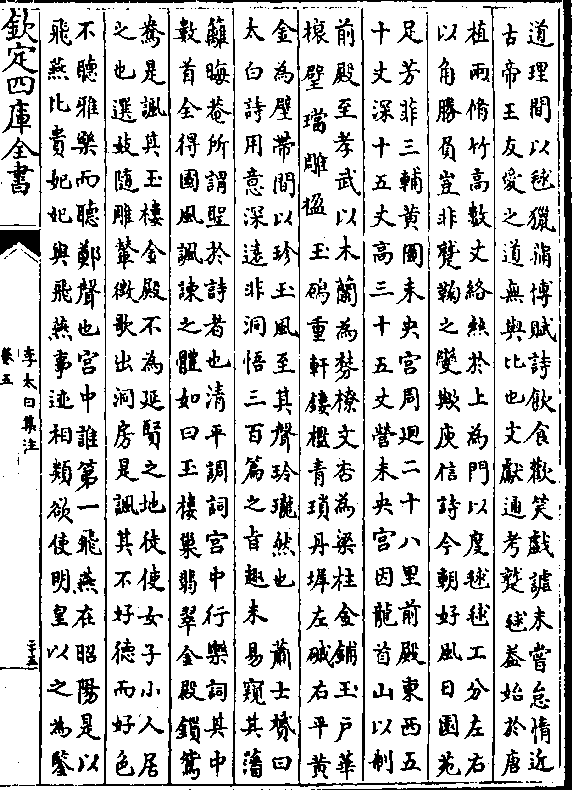 道理間以毬獵蒱博賦詩飲食歡笑戲謔未嘗怠惰近
古帝王友愛之道無與比也文獻通考蹵毬蓋始於唐
植兩脩竹高數丈絡網於上為門以度毬毬工分左右
以角勝負豈非蹵鞠之變歟庾信詩今朝好風日園苑
足芳菲三輔黃圖未央宮周廻二十八里前殿東西五
十丈深十五丈高三十五丈營未央宮因龍首山以制
前殿至孝武以木蘭為棼橑文杏為梁柱金鋪玉戶華
榱壁璫雕楹玉磶重軒鏤檻青瑣丹墀左磩右平黃
金為壁帶間以珍玉風至其聲玲瓏然也 蕭士贇曰
太白詩用意深遠非洞悟三百篇之旨趣未易窺其藩
籬晦菴所謂聖於詩者也清平調詞宮中行樂詞其中
數首全得國風諷諫之體如曰玉樓巢翡翠金殿鎖鴛
鴦是諷其玉樓金殿不為延賢之地徒使女子小人居
之也選妓隨雕輦徵歌出洞房是諷其不好德而好色
不聽雅樂而聽鄭聲也宮中誰第一飛燕在昭陽是以
飛燕比貴妃妃與飛燕事迹相類欲使明皇以之為鑒
欽定四庫全書
李太白集注
卷五
二十五